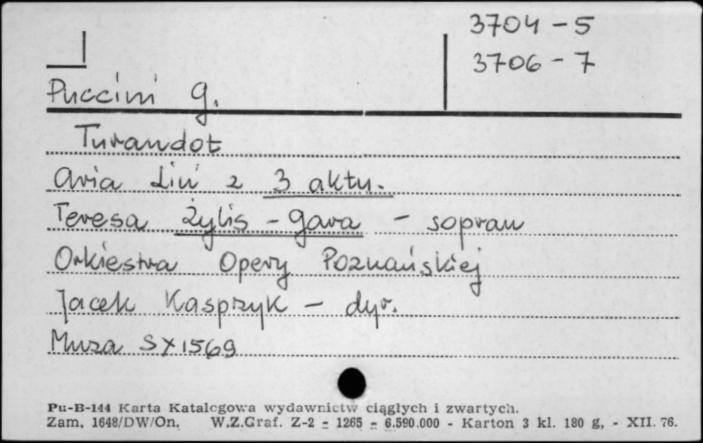 3704-5
3706-7
Puccini G.
Turandot
Aria Liu z 3 aktu.
Teresa Żylis-Gara - sopran
Orkiestra Opery Poznańskiej
Jacek Kasprzyk - dyr.
Muza SX1569
Pu-B-144 Karta Katalogowa wydawnictw ciągłych i zwartych.
Zam. 1648/DW/On. W.Z.Graf. Z-2 = 1265 = 6.590.000 - Karton 3 kl. 180 g, - XII. 76.